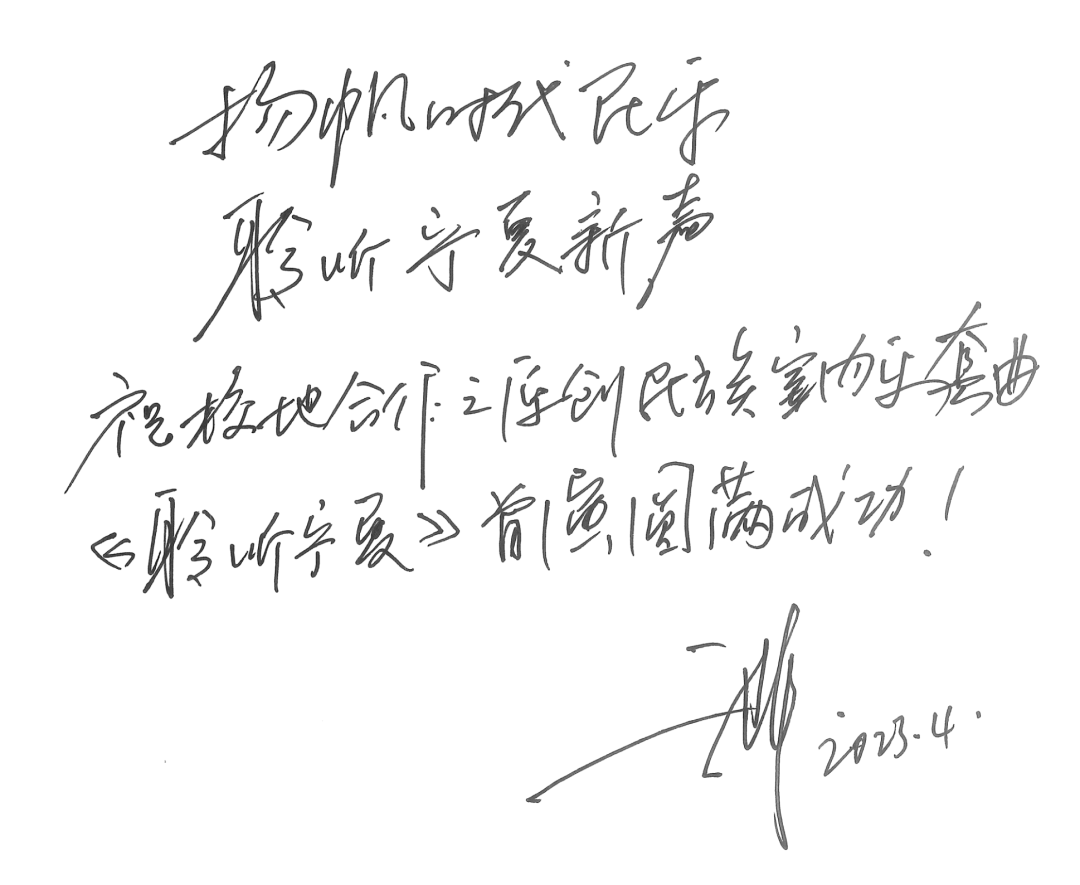 扬帆时代民乐
聆听宁夏新声
祝校地合作之原创民族室内乐套曲
《聆听宁夏》首演圆满成功！
2023.4.